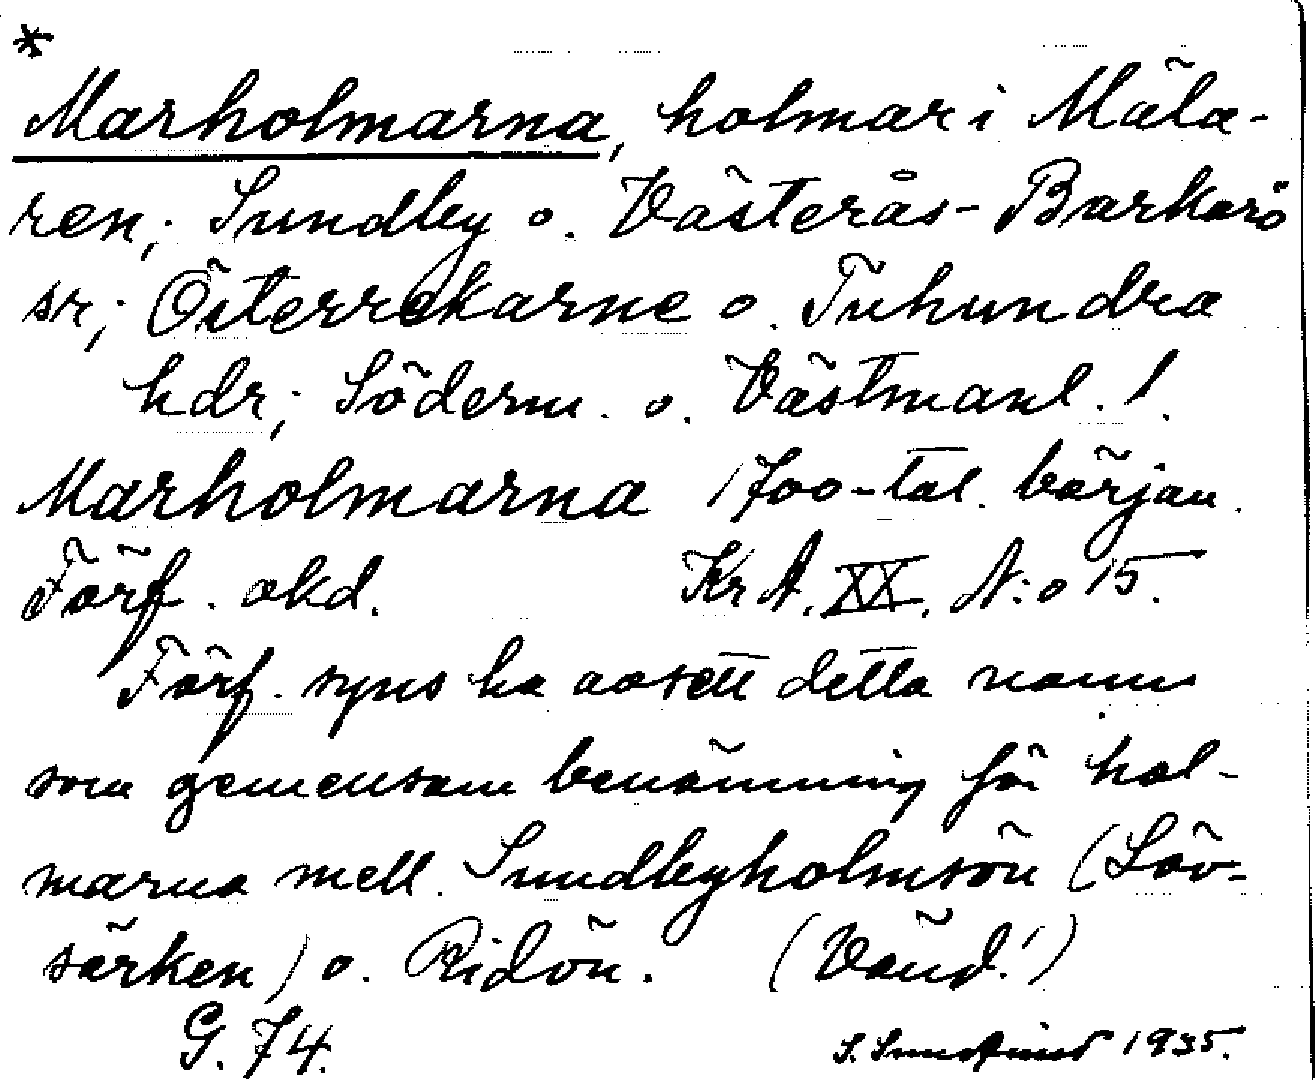 *
Marholmarna, holmar i Mäla-
ren; Sundby o. Västerås-Barkarö
sr; Österrekarne o. Tuhundra
hdr; Söderm. o. Västmanl. l.
Marholmarna 1700-tal. början.
Förf. okd. KrA. XX. N:o 15.
Förf. syns ha avsett detta namn
som gemensam benämning för hol-
marna mell. Sundbyholmsön (Löv-
särken) o. Ridön. (Vänd!)
G. 74. 1935.